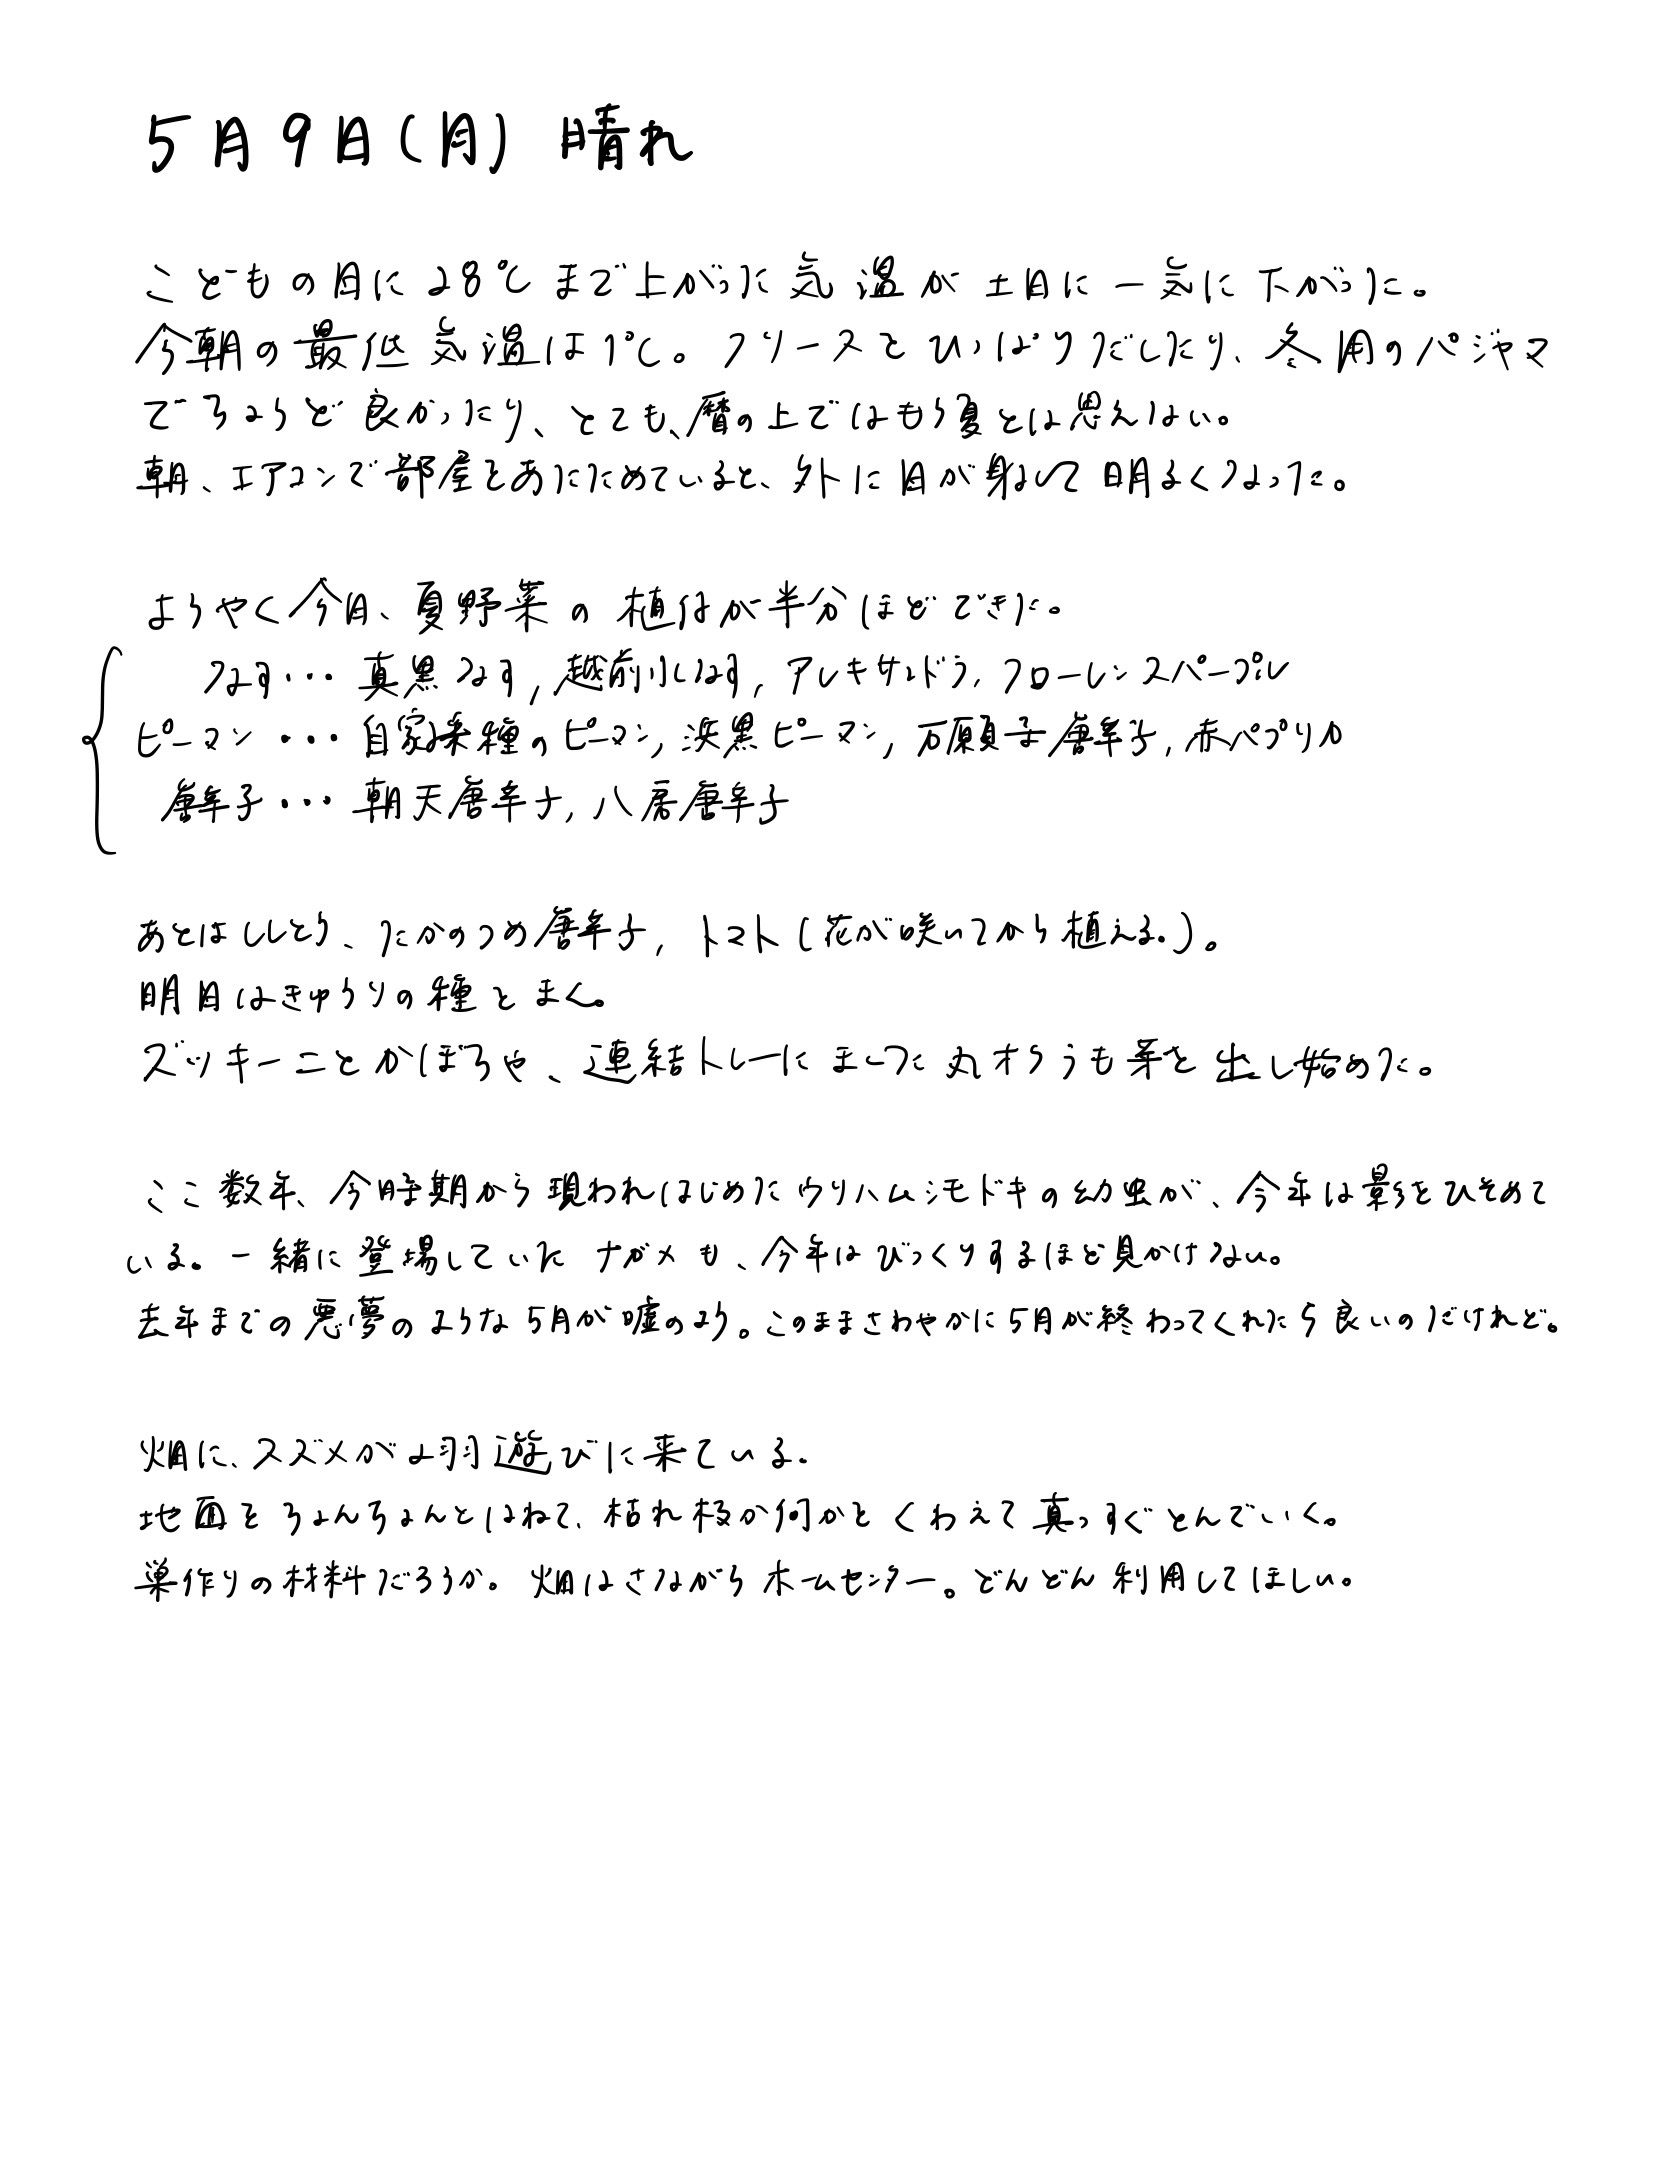 5月9日(月) 晴れ
こどもの日に28℃まで上がった気温が土日に一気に下がった。
今朝の最低気温は1℃。フリースをひっぱりだしたり、冬用のパジャマ
でちょうど良かったり、とても、暦の上ではもう夏とは思えない。
朝、エアコンで部屋をあたためていると、外に日が射して明るくなった。
ようやく今日、夏野菜の植付が半分ほどできた。
なす・・・真黒なす, 越前小なす, アレキサンドラ, フローレンスパープル
ピーマン・・・自家採種のピーマン, 浜黒ピーマン, 万願寺唐辛子, 赤パプリカ
唐辛子・・・朝天唐辛子, 八房唐辛子
あとはししとう、たかのつめ唐辛子, トマト(花が咲いてから植える。)。
明日はきゅうりの種をまく。
ズッキーニとかぼちゃ、連結トレーにまいた丸オクラも芽を出し始めた。
ここ数年、今時期から現われはじめたウリハムシモドキの幼虫が、今年は影をひそめて
いる。一緒に登場していたナガメも、今年はびっくりするほど見かけない。
去年までの悪夢のような5月が嘘のよう。このままさわやかに5月が終わってくれたら良いのだけれど。
畑に、スズメが2羽遊びに来ている。
地面をちょんちょんとはねて、枯れ枝か何かをくわえて真っすぐとんでいく。
巣作りの材料だろうか。畑はさながらホームセンター。どんどん利用してほしい。